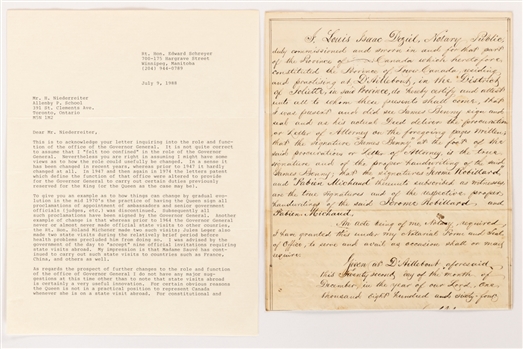 Rt. Hon. Edward Schreyer
700-175 Hargrave Street
Winnipeg, Manitoba
July 9, 1988
Mr. R. Niederreiter
Allenby P. School
391 St. Clements Ave.
Toronto, Ontario
M5N 1M2
Dear Mr. Niederreiter,
This is to acknowledge your letter inquiring into the role and func-
tion of the office of the Governor General. It is not quite correct
to assume that I "felt too confined" in the role of the Governor
General. Nevertheless you are right in assuming I might have some
views as to how the role could usefully be changed. In a sense it
has been changed in recent years, whereas prior to 1947 it hardly
changed at all. In 1947 and then again in 1976 the letters patent
which define the function of that office were altered to provide
for the Governor General to carry out certain duties previously
reserved for the King (or the Queen as the case may be).
To give you an example as to how things can change by gradual evo-
lution in the mid 1970's the practice of having the Queen sign all
proclamations of appointment of ambassadors and senior government
officials (judges, etc.) was discontinued. Subsequently all
such proclamations have been signed by the Governor General. Another
example of change is that whereas prior to 1964 the Governor General
never or almost never made official state visits to other countries,
the Rt. Hon. Roland Michener made two such visits; Jules Leger also
made two state visits during the relatively brief period before
health problems precluded him from doing so. I was advised by the
government of the day to "accept" nine official invitations requiring
state visits abroad. My impression is that Madame Sauve has cont-
inued to carry out such state visits to countries such as France,
China, and others as well.
As regards the prospect of further changes to the role and function
of the office of Governor General I do not have any major sug-
gestions at this time other than to note that state visits abroad
is certainly a very useful innovation. For certain obvious reasons
the Queen is not in a practical position to represent Canada
whenever she is on a state visit abroad. For constitutional and
I, Louis Isaac Deziel, Notary Public
duly commissioned and sworn in and for that part
of the Province of Canada which heretofore
constituted the Province of Lower Canada, residing
and practising at D'Aillebout, in the District
of Joliette, in said Province, do hereby certify and attest
unto all to whom these presents shall come, that
I was present and did see James Henry sign and
seal and as his actual Deed deliver the procuration
or Letter of Attorney on the foregoing pages written
that the signature James Henry at the foot of the
said procuration or Letter of Attorney is the true
signature and of the proper handwriting of the said
James Henry; that the signatures Jerome Robillard
and Fabien Michaud thereunto subscribed as witnesses
are the true signatures and of the respective proper
handwritings of the said Jerome Robillard and
Fabien Michaud.
An acte being of me Notary required
I have granted this under my Notarial Form and Seal
of Office, to serve and avail as occasion shall or may
require
Given at D'Aillebout, aforesaid
this Twenty second day of the month of
December, in the year of our Lord, One
thousand eight hundred and sixty four